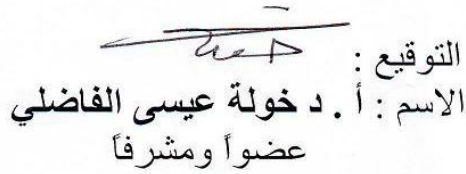 التوقيع :
الاسم : أ . د خولة عيسى الفاضلي
عضواً ومشرفاً